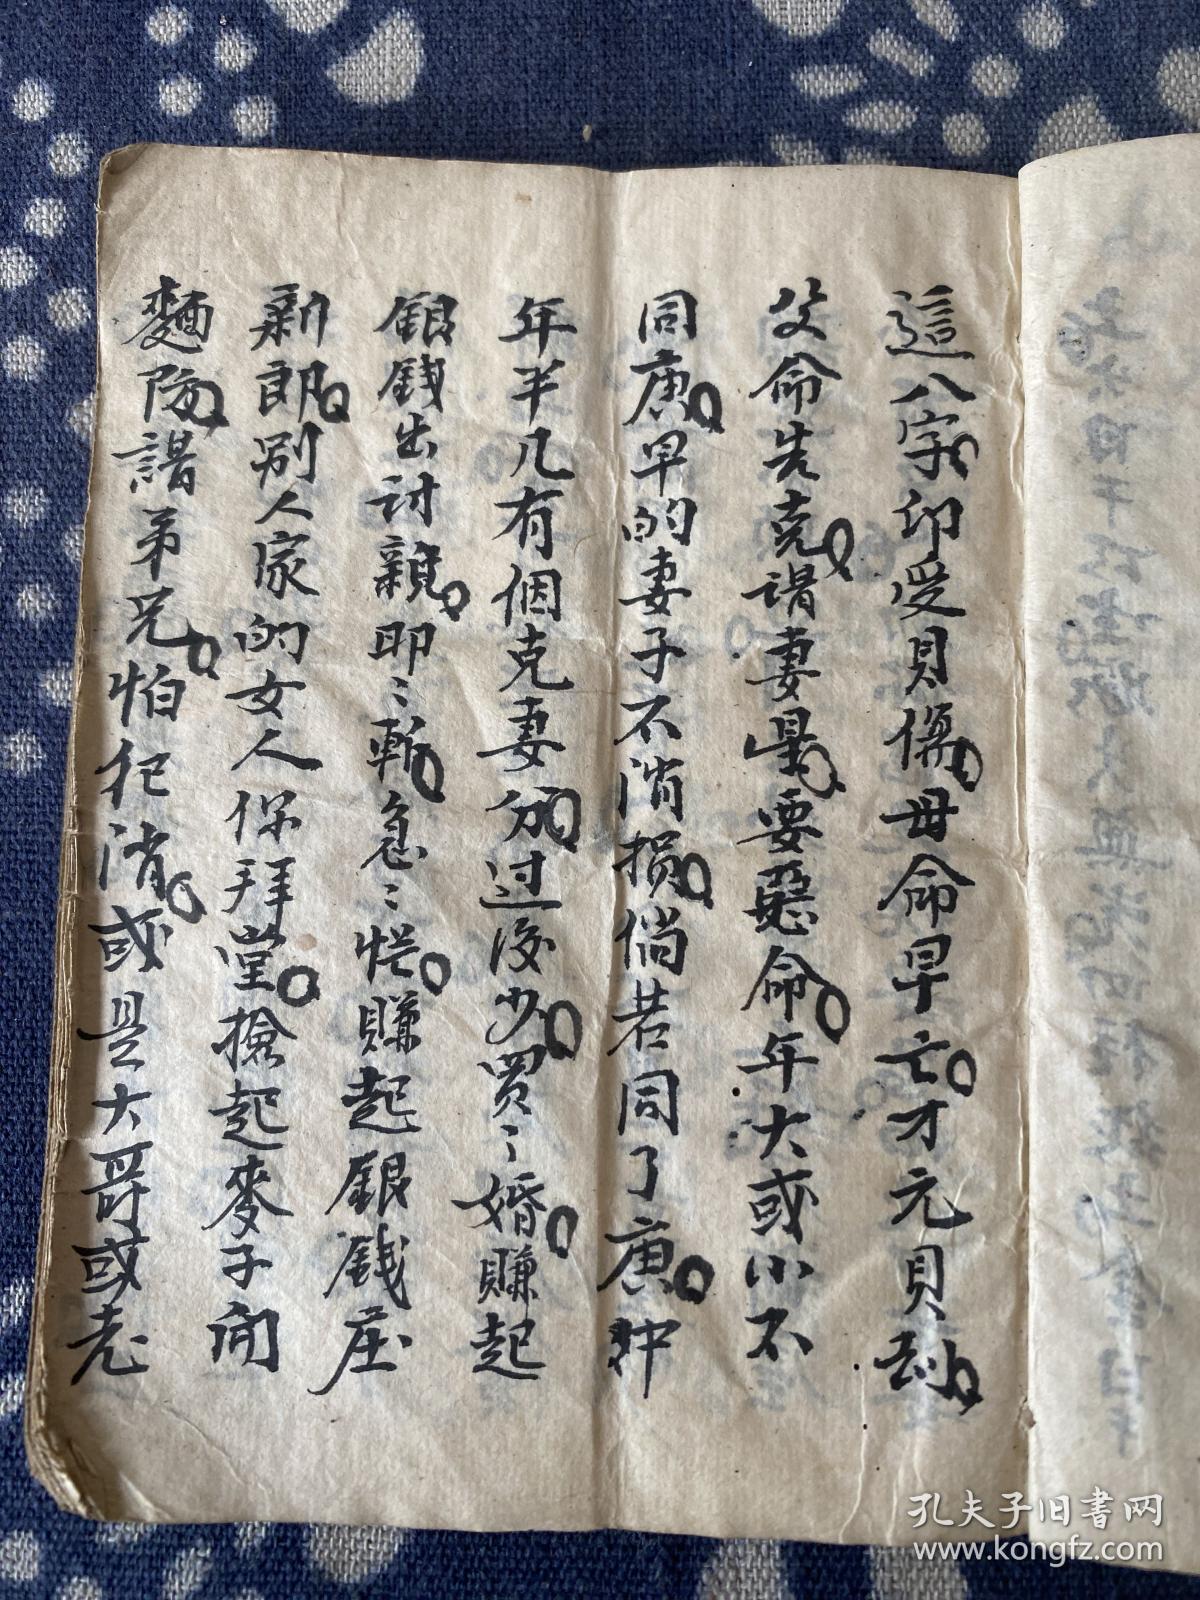 這八字印受貝傷母命早亡才元貝刦
父命告克謂妻星要惡命年大或小不
同庚早的妻子不消損倘若同了庚冲
年半几有個克妻分过後少買〻婚賺起
銀钱出討親即〻斬急〻忙賺起銀钱庄
新郎别人家的女人你拜堂搶起麥子闹
麵陵謁弟兄怕犯消或是大哥或老
孔夫子旧書网
www.kongfz.com